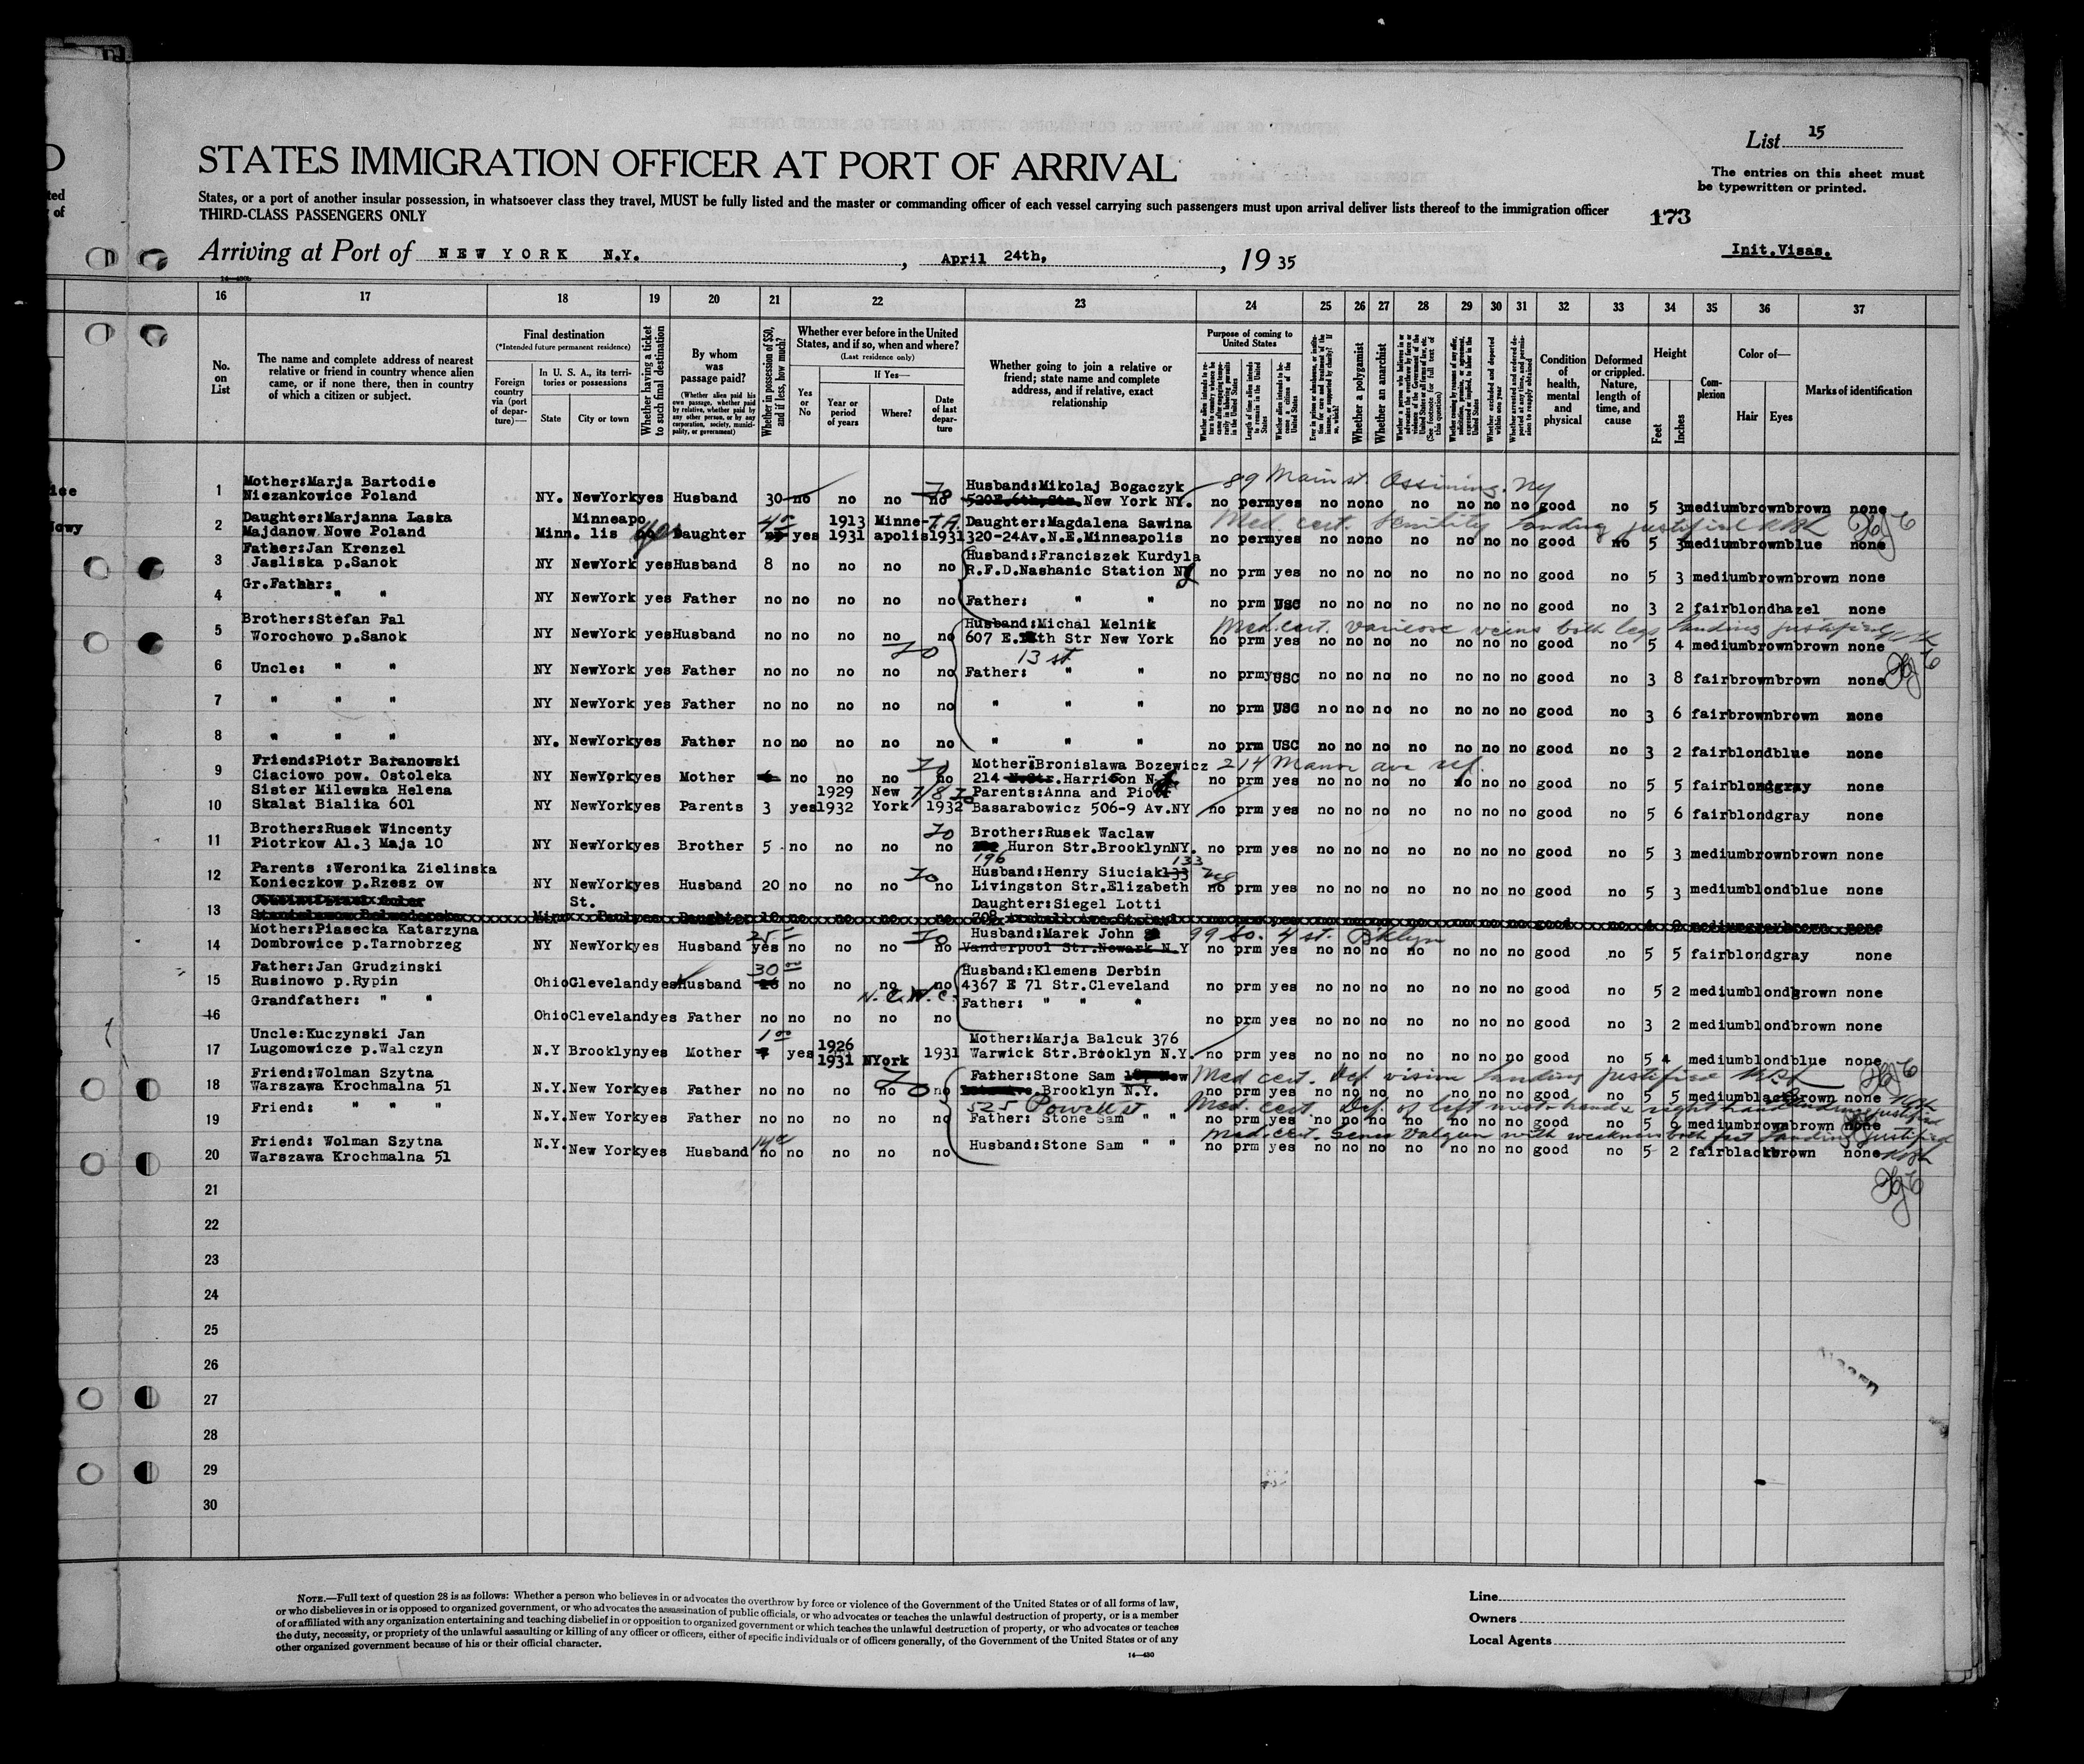 List 15
STATES IMMIGRATION OFFICER AT PORT OF ARRIVAL
The entries on this sheet must
be typewritten or printed.
States, or a port of another insular possession, in whatsoever class they travel, MUST be fully listed and the master or commanding officer of each vessel carrying such passengers must upon arrival deliver lists thereof to the immigration officer
THIRD-CLASS PASSENGERS ONLY
173
Arriving at Port of NEW YORK N.Y. , April 24th, , 19 35
Init.Visas.
16 17 18 19 20 21 22 23 24 25 26 27 28 29 30 31 32 33 34 35 36 37
No. on List
The name and complete address of nearest relative or friend in country whence alien came, or if none there, then in country of which a citizen or subject.
Final destination
(*Intended future permanent residence)
Foreign country via (port of departure)—
In U. S. A., its territories or possessions
State
City or town
Whether having a ticket to such final destination
By whom was passage paid?
(Whether alien paid his own passage, whether paid by relative, whether paid by any other person, or by any corporation, society, municipality, or government)
Whether in possession of $50, and if less, how much?
Whether ever before in the United States, and if so, when and where?
(Last residence only)
Yes or No
If Yes—
Year or period of years
Where?
Date of last departure
Whether going to join a relative or friend; state name and complete address, and if relative, exact relationship
Purpose of coming to United States
Whether a polygamist
Whether an anarchist
Condition of health, mental and physical
Deformed or crippled. Nature, length of time, and cause
Height
Feet
Inches
Complexion
Color of—
Hair
Eyes
Marks of identification
1 Mother:Marja Bartodie Husband:Mikolaj Bogaczyk 89 Main st. Ossining. Ny
Niezankowice Poland NY. NewYork yes Husband 30 no no no no New York NY. no perm yes no no no no no no no good no 5 3 medium brown brown none
2 Daughter:Marjanna Laska Minneapo 1913 Minne- T.A. Daughter:Magdalena Sawina Med. cert. Senility landing justified
Majdanow Nowe Poland Minn. lis yes Daughter yes 1931 apolis 1931 320-24Av.N.E.Minneapolis no perm yes no no no no no no no good no 5 3 medium brown blue none
3 Father:Jan Krenzel Husband:Franciszek Kurdyla
Jasliska p.Sanok NY NewYork yes Husband 8 no no no no R.F.D.Nashanic Station NJ no prm yes no no no no no no no good no 5 3 medium brown brown none
4 Gr.Father: " " NY NewYork yes Father no no no no no Father: " " no prm USC no no no no no no no good no 3 2 fair blond hazel none
5 Brother:Stefan Fal Husband:Michal Melnik Med. cert. varicose veins both legs landing justified
Worochowo p.Sanok NY NewYork yes Husband no no no no no 607 E. th Str New York no prm yes no no no no no no no good no 5 4 medium brown brown none
13 st
6 Uncle: " " NY NewYork yes Father no no no no no Father: " " no prm USC no no no no no no no good no 3 8 fair brown brown none
7 " " " NY NewYork yes Father no no no no no " " " no prm USC no no no no no no no good no 3 6 fair brown brown none
8 " " " NY. NewYork yes Father no no no no no " " " no prm USC no no no no no no no good no 3 2 fair blond blue none
9 Friend:Piotr Baranowski Mother:Bronislawa Bozewicz 214 Manor ave
Ciaciowo pow. Ostoleka NY NewYork yes Mother no no no no 214 Harrison N. no prm yes no no no no no no no good no 5 5 fair blond gray none
10 Sister Milewska Helena 1929 New 7/8 Parents:Anna and Piotr
Skalat Bialika 601 NY NewYork yes Parents 3 yes 1932 York 1932 Basarabowicz 506-9 Av.NY no prm yes no no no no no no no good no 5 6 fair blond gray none
11 Brother:Rusek Wincenty Brother:Rusek Waclaw
Piotrkow Al.3 Maja 10 NY NewYork yes Brother 5 no no no no Huron Str.Brooklyn NY. no prm yes no no no no no no no good no 5 3 medium brown brown none
196
12 Parents :Weronika Zielinska Husband:Henry Siuciak 133
Konieczkow p.Rzesz ow NY NewYork yes Husband 20 no no no no Livingston Str.Elizabeth no prm yes no no no no no no no good no 5 3 medium blond blue none
13 St. Daughter:Siegel Lotti
Minn Paul yes Daughter 10 no no no no
14 Mother:Piasecka Katarzyna 25 Husband:Marek John 99 So. 4 st. Bklyn
Dombrowice p.Tarnobrzeg NY NewYork yes Husband yes no no no no Vanderpool Str.Newark N.Y no prm yes no no no no no no no good no 5 5 fair blond gray none
15 Father:Jan Grudzinski 30 Husband:Klemens Derbin
Rusinowo p.Rypin Ohio Cleveland yes Husband no no no no 4367 E 71 Str.Cleveland no prm yes no no no no no no no good no 5 2 medium blond brown none
16 Grandfather: " " Ohio Cleveland yes Father no no no no no Father: " " " no prm yes no no no no no no no good no 3 2 medium blond brown none
17 Uncle:Kuczynski Jan 1926 Mother:Marja Balcuk 376
Lugomowicze p.Walczyn N.Y Brooklyn yes Mother yes 1931 NYork 1931 Warwick Str.Brooklyn N.Y. no prm yes no no no no no no no good no 5 4 medium blond blue none
18 Friend:Wolman Szytna Father:Stone Sam Med cert. Def. vision landing justified
Warszawa Krochmalna 51 N.Y. New York yes Father no no no no no Brooklyn N.Y. no prm yes no no no no no no no good no 5 5 medium black brown none
525 Powell st
19 Friend: " " " N.Y. New York yes Father no no no no no Father: Stone Sam " " no prm yes no no no no no no no good no 5 6 medium brown brown none
Med. cert. Def. of left hand & right hand landing justified
20 Friend: Wolman Szytna Husband:Stone Sam " " Med. cert. Genu Valgum with weakness both feet landing justified
Warszawa Krochmalna 51 N.Y. New York yes Husband no no no no no no prm yes no no no no no no no good no 5 2 fair black brown none
21
22
23
24
25
26
27
28
29
30
NOTE.—Full text of question 28 is as follows: Whether a person who believes in or advocates the overthrow by force or violence of the Government of the United States or of all forms of law,
or who disbelieves in or is opposed to organized government, or who advocates the assassination of public officials, or who advocates or teaches the unlawful destruction of property, or is a member
of or affiliated with any organization entertaining and teaching disbelief in or opposition to organized government or which teaches the unlawful destruction of property, or who advocates or teaches
the duty, necessity, or propriety of the unlawful assaulting or killing of any officer or officers, either of specific individuals or of officers generally, of the Government of the United States or of any
other organized government because of his or their official character.
14—430
Line
Owners
Local Agents